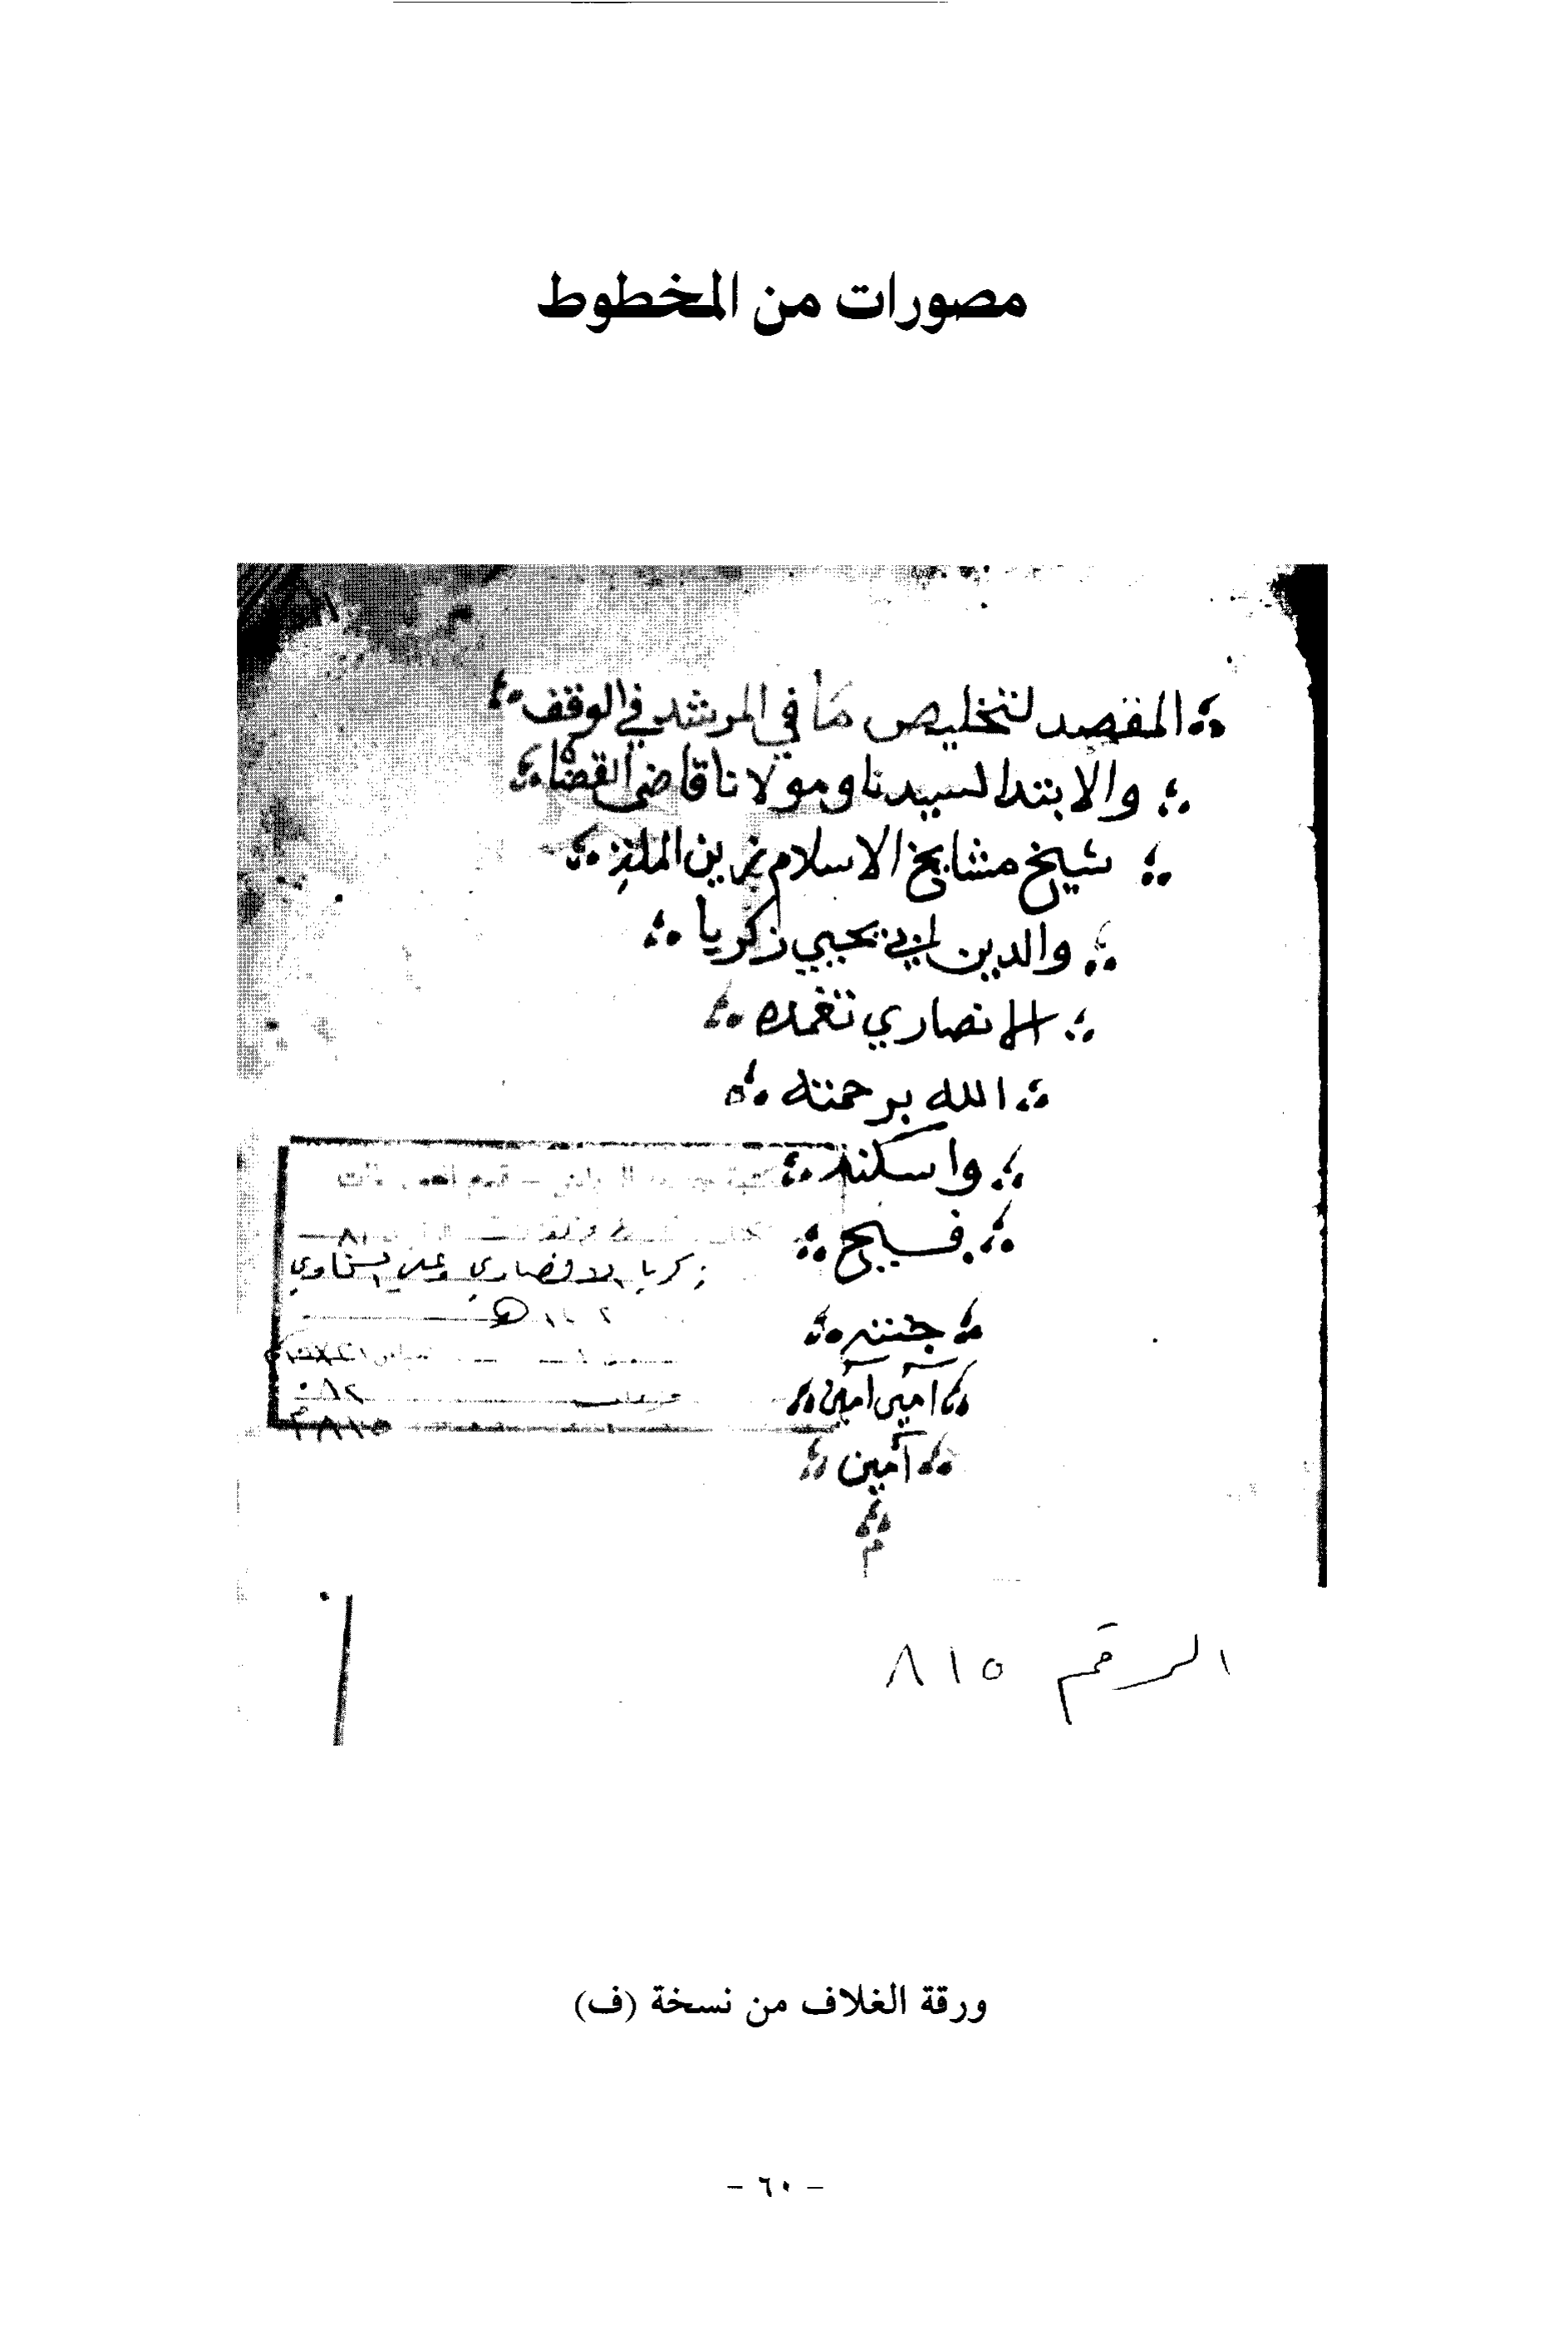 مصورات من المخطوط
المقصد لتخليص ما في المرشد في الوقف
والابتدا لسيدنا ومولانا قاضى القضاة
شيخ مشايخ الاسلام زين الملة
والدين ابي يحيي زكريا
الانصاري تغمده
الله برحمته
واسكنه
فسيح
جنته
امين امين
آمين
م
قسم
زكريا الانصاري وعلي السخاوي
هـ
٨١٥
الرقم ٨١٥
ورقة الغلاف من نسخة (ف)
- ٦٠ -